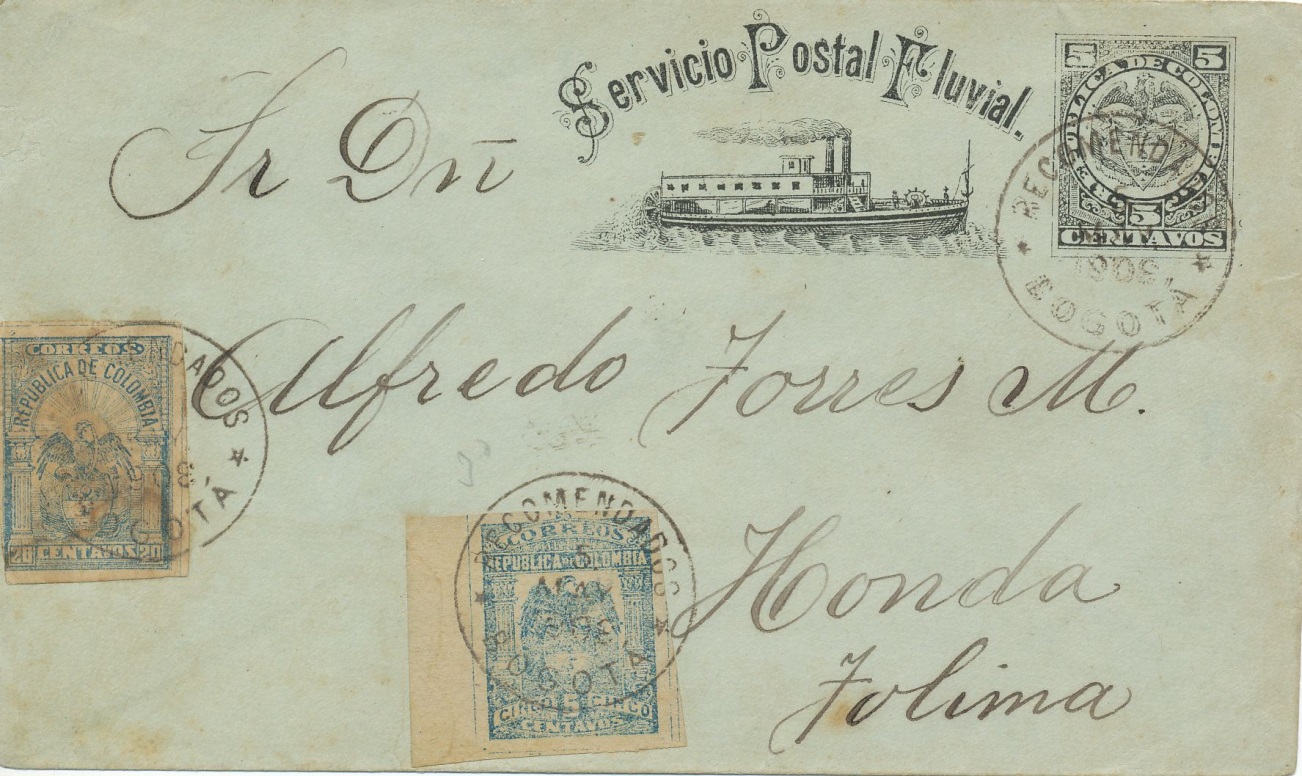 Servicio Postal Fluvial.
5 5
REPUBLICA DE COLOMBIA
5
CENTAVOS
RECOMENDA
★ ★
BOGOTÁ
Sr Dn
Alfredo Torres M.
Honda
Tolima
CORREOS
REPUBLICA DE COLOMBIA
20 CENTAVOS 20
NDADOS
★
GOTÁ
CORREOS
REPUBLICA DE COLOMBIA
CINCO 5 CINCO
CENTAVOS
RECOMENDADOS
5
MAY
★ ★
BOGOTA